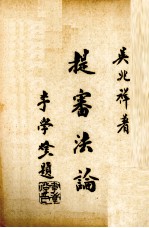 吳兆祥著
提審法論
李學燈題